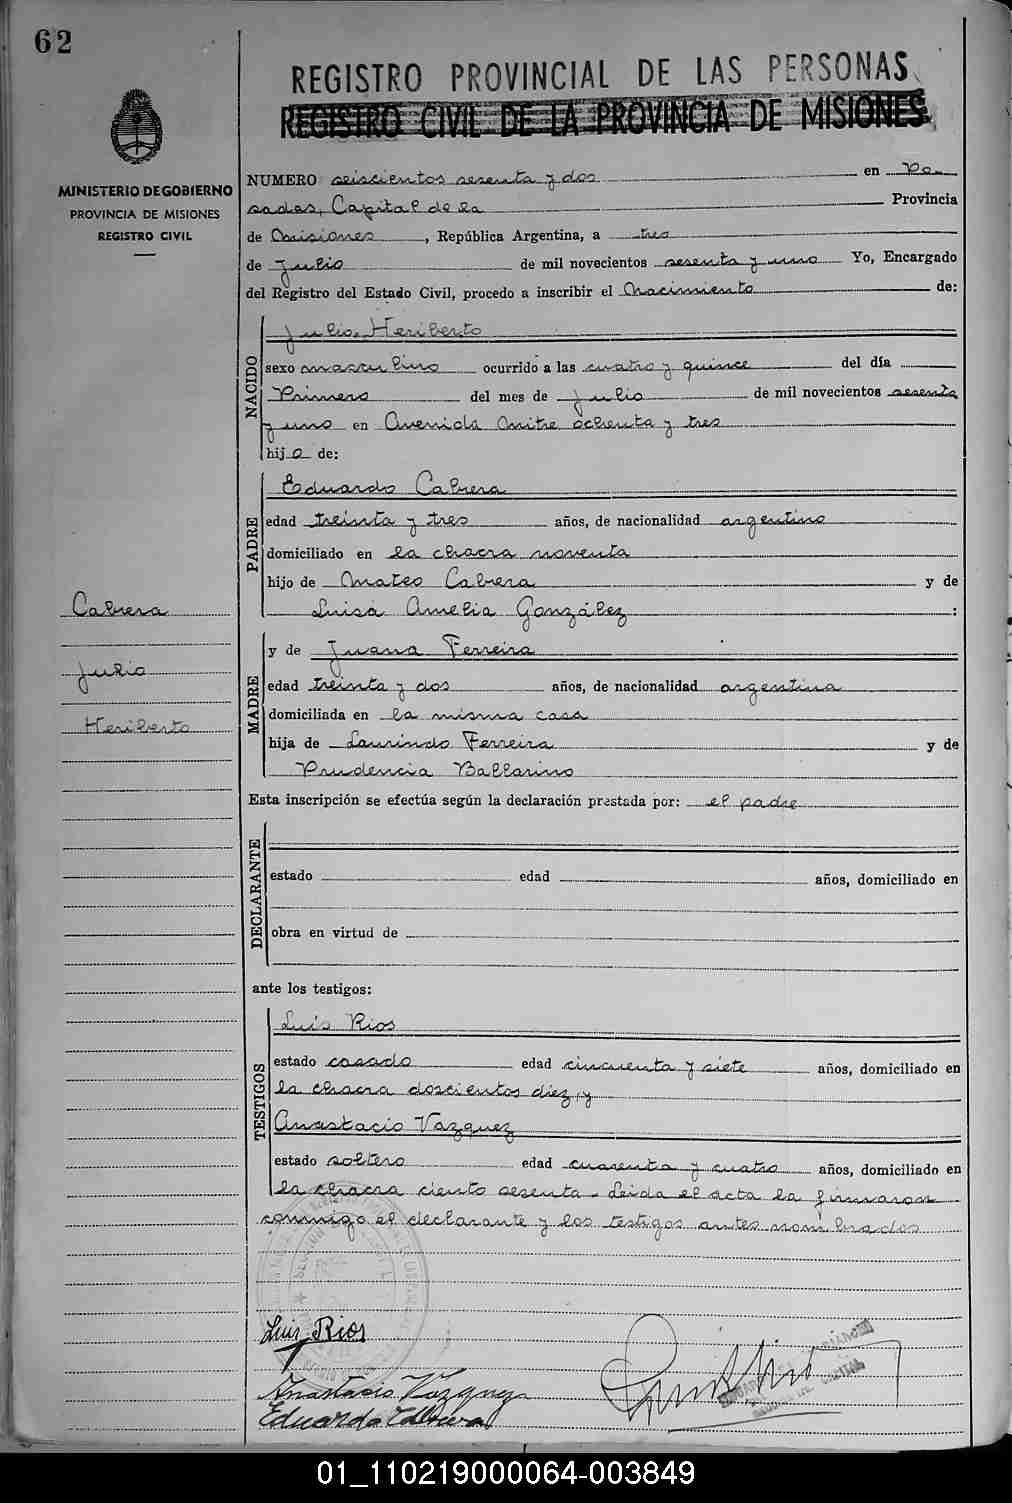 62
REGISTRO PROVINCIAL DE LAS PERSONAS
REGISTRO CIVIL DE LA PROVINCIA DE MISIONES
MINISTERIO DE GOBIERNO
PROVINCIA DE MISIONES
REGISTRO CIVIL
NUMERO seiscientos sesenta y dos en Po-
sadas, Capital de la Provincia
de Misiones, República Argentina, a tres
de Julio de mil novecientos sesenta y uno Yo, Encargado
del Registro del Estado Civil, procedo a inscribir el Nacimiento de:
NACIDO
Julio Heriberto
sexo masculino ocurrido a las cuatro y quince del día
Primero del mes de Julio de mil novecientos sesenta
y uno en Avenida Mitre ochenta y tres
hijo de:
PADRE
Eduardo Cabrera
edad treinta y tres años, de nacionalidad argentino
domiciliado en la chacra noventa
hijo de Mateo Cabrera y de
Luisa Amelia González :
Cabrera
Julio
Heriberto
MADRE
y de Juana Ferreira
edad treinta y dos años, de nacionalidad argentina
domiciliada en la misma casa
hija de Laurindo Ferreira y de
Prudencia Ballarino
Esta inscripción se efectúa según la declaración prestada por: el padre
DECLARANTE
estado edad años, domiciliado en
obra en virtud de
ante los testigos:
TESTIGOS
Luis Rios
estado casado edad cincuenta y siete años, domiciliado en
la chacra doscientos diez, y
Anastacio Vazquez
estado soltero edad cuarenta y cuatro años, domiciliado en
la chacra ciento sesenta - Leida el acta la firmaron
conmigo el declarante y los testigos antes nombrados
Luis Rios
Anastacio Vazquez
Eduardo Cabrera
01_110219000064-003849